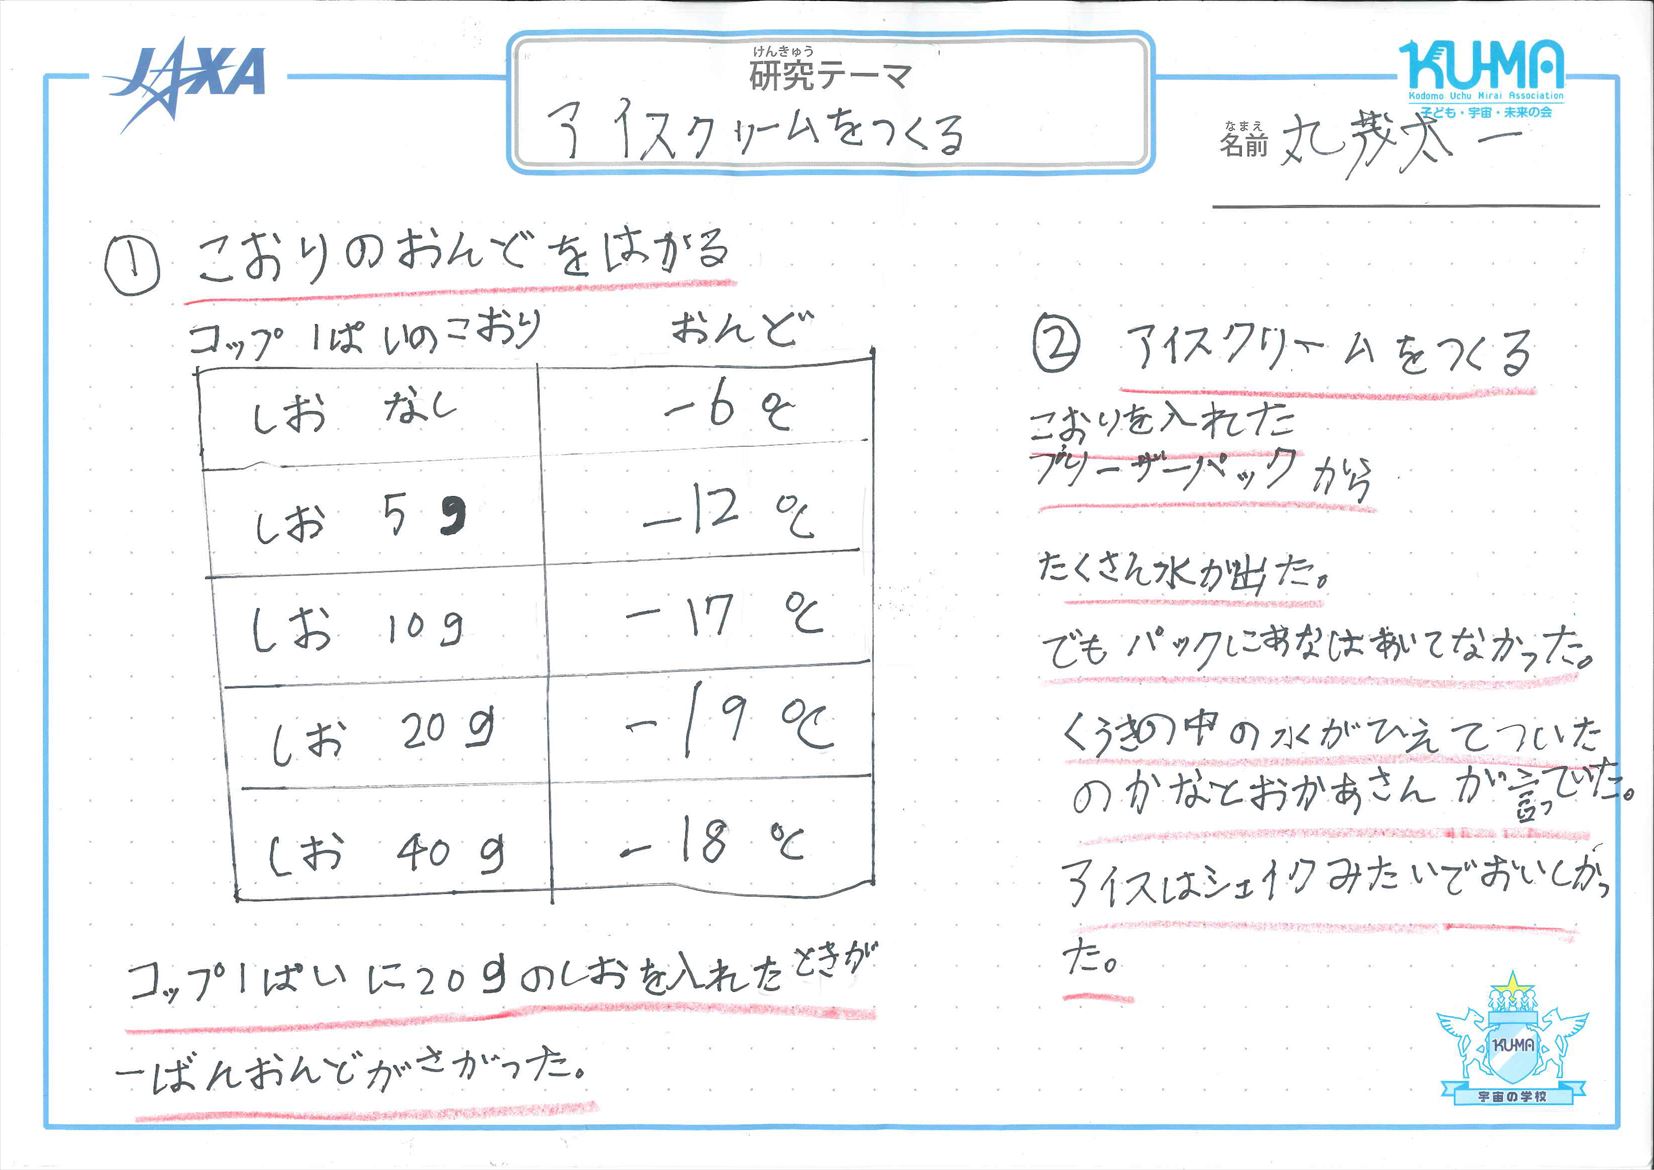 JAXA
けんきゅう
研究テーマ
アイスクリームをつくる
KU-MA
Kodomo Uchu Mirai Association
子ども・宇宙・未来の会
なまえ
名前 丸茂太一
① こおりのおんどをはかる
コップ1ぱいのこおり おんど
しお なし -6℃
しお 5g -12℃
しお 10g -17℃
しお 20g -19℃
しお 40g -18℃
コップ1ぱいに20gのしおを入れたときが
一ばんおんどがさがった。
② アイスクリームをつくる
こおりを入れた
フリーザーパックから
たくさん水が出た。
でもパックにあなはあいてなかった。
くうきの中の水がひえてついた
のかなとおかあさんが言っていた。
アイスはシェイクみたいでおいしかっ
た。
KU-MA
宇宙の学校